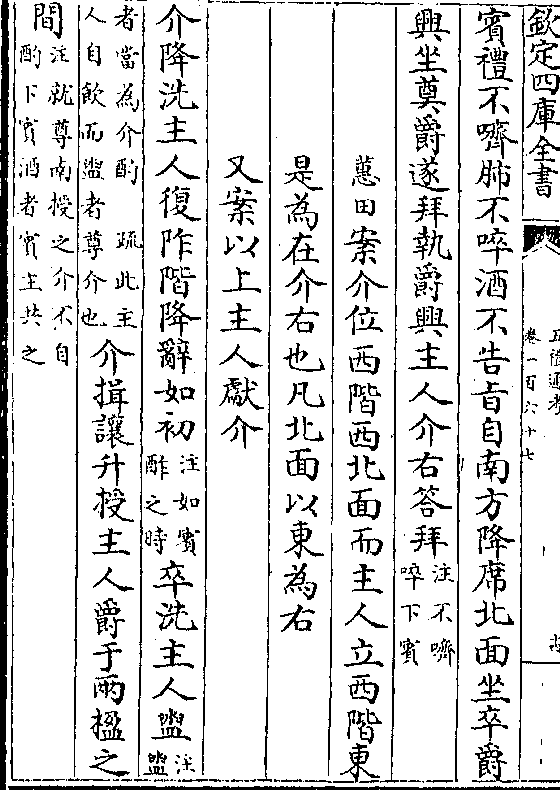 欽定四庫全書
五禮通考
卷一百六十七
賓禮不嚌肺不啐酒不告旨自南方降席北面坐卒爵
興坐奠爵遂拜執爵興主人介右答拜注不嚌啐下賓
蕙田案介位西階西北面而主人立西階東
是為在介右也凡北面以東為右
又案以上主人獻介
介降洗主人復阼階降辭如初注如賓酢之時卒洗主人盥注盥
者當為介酌 疏此主人自飲而盥者尊介也介揖讓升授主人爵于兩楹之
間注就尊南授之介不自酌下賓酒者賓主共之